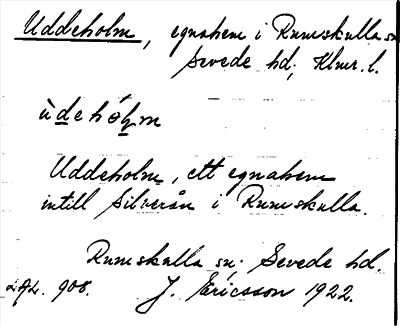 Uddeholm, egnahem i Rumskulla sn
Sevede hd, Klmr. l.
ùdehó̤lm
Uddeholm, ett egnahem
intill Silverån i Rumskulla.
Rumskulla sn; Sevede hd.
908. J. Ericsson 1922.